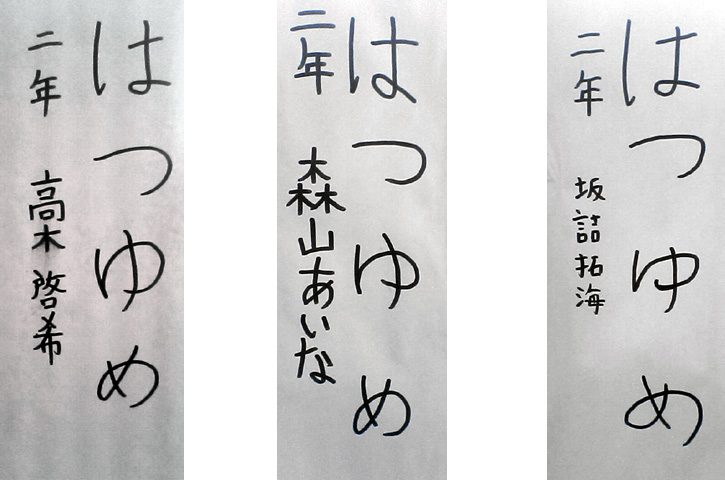 はつゆめ
二年 高木啓希
はつゆめ
二年 森山あいな
はつゆめ
二年 坂詰拓海